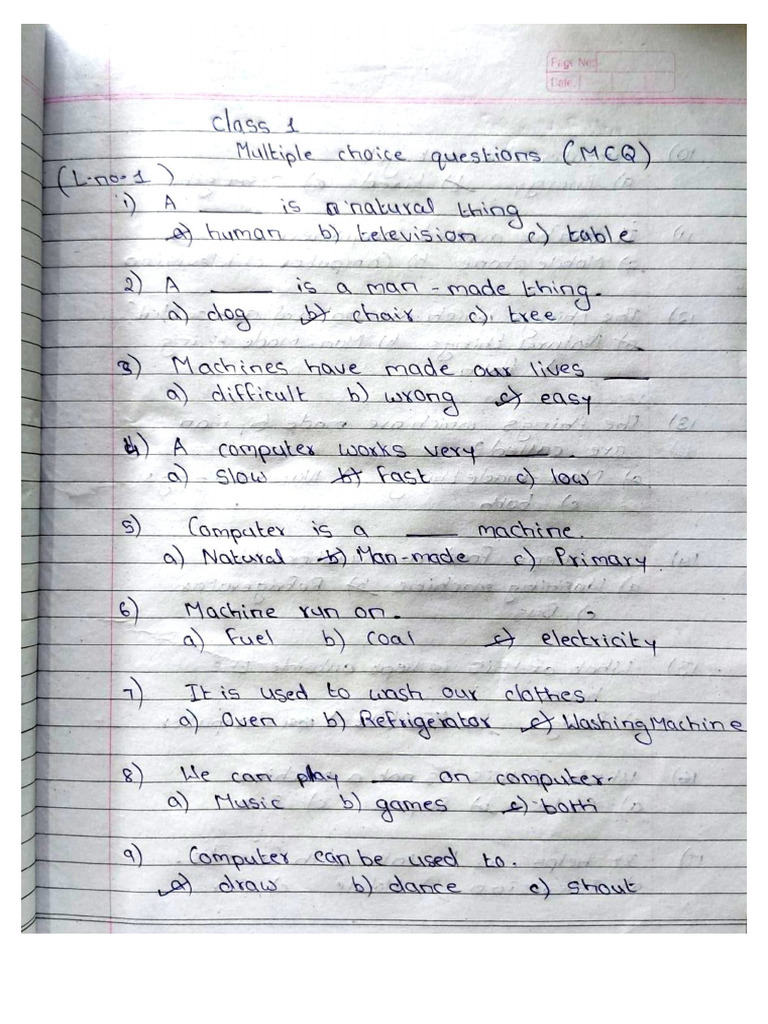 Page No:
Date:
Class 1
Multiple choice questions (MCQ)
(L-no-1)
1) A ____ is a natural thing
a) human b) television c) table
2) A ____ is a man-made thing.
a) dog b) chair c) tree
3) Machines have made our lives ____
a) difficult b) wrong c) easy
4) A computer works very ____.
a) slow b) Fast c) low
5) Computer is a ____ machine.
a) Natural b) Man-made c) Primary
6) Machine run on.
a) Fuel b) Coal c) electricity
7) It is used to wash our clothes.
a) Oven b) Refrigerator c) Washing Machine
8) We can play ____ on computer.
a) Music b) games c) both
9) Computer can be used to.
a) draw b) dance c) shout